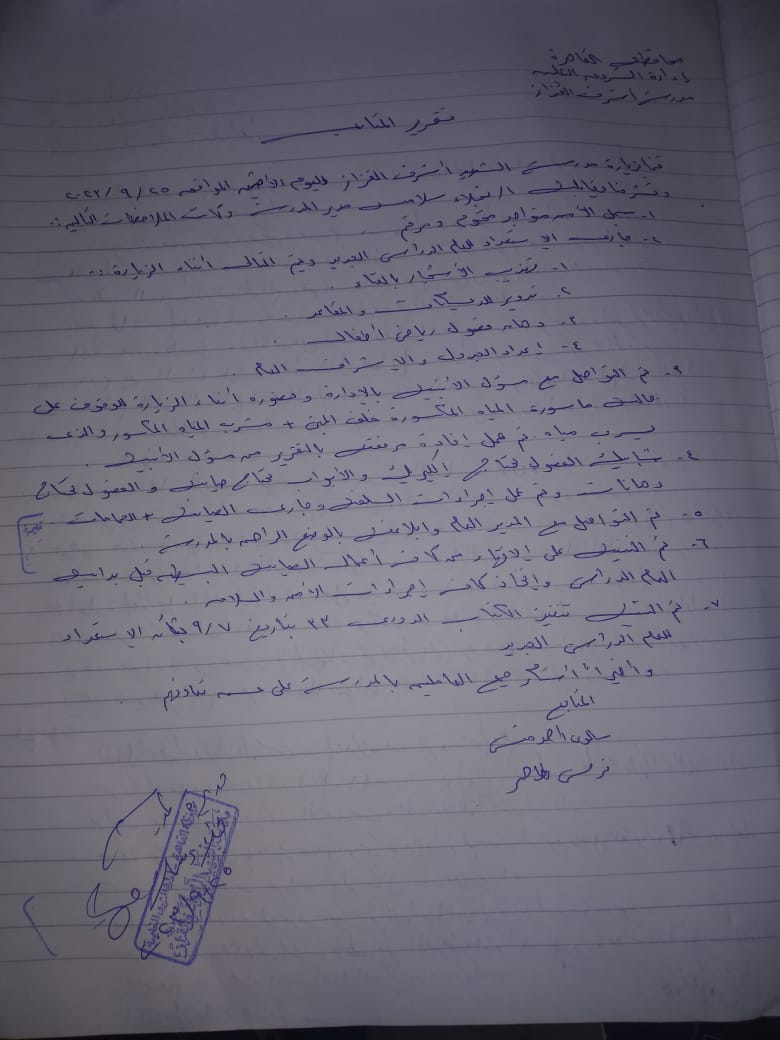 محافظة القاهرة
إدارة الشروق التعليمية
مدرسة أشرف القزاز
تقرير المتابعة
قمنا بزيارة مدرسة الشهيد أشرف القزاز في يوم الموافق ٢٠٢٢/٩/٢٥
وتشرفنا بمقابلة أ/ نجلاء سلامة مدير المدرسة وكانت الملاحظات التالية :-
١- سجل الأمن متواجد مختوم ومرقم
٢- جاري الاستعداد للعام الدراسي الجديد وتم التالي أثناء الزيارة :-
١- تهذيب الأشجار بالفناء .
٢- تدوير الديسكات والمقاعد .
٣- دهان فصول رياض أطفال
٤- إعداد الجدول والإشراف العام .
٣- تم التواصل مع مسؤل الأبنية بالادارة وحضوره أثناء الزيارة للوقوف على
حالة ماسورة المياه المكسورة خلف المبنى + مسرب المياه المكسور والذي
يسرب مياه تم عمل إفادة مرفقة بالتقرير من مسؤل الأبنية .
٤- شبابيك الفصول تحتاج والأبواب تحتاج صيانة و الفصول تحتاج
دهانات وتم عمل إجراءات السلفة وجاري الصيانة + الحمامات
٥- تم التواصل مع المدير العام وابلاغه بالوضع الراهن بالمدرسة .
٦- تم التنبيه على الانتهاء من كافة أعمال الصيانة البسيطة قبل بداية
العام الدراسي وإتخاذ كافة إجراءات الأمن والسلامة .
٧- تم التنبيه تنفيذ الكتاب الدوري ٣٣ بتاريخ ٩/٧ بشأن الاستعداد
للعام الدراسي الجديد
وأخيراً أشكر جميع العاملين بالمدرسة على حسن تعاونهم .
المتابع
سلوى أحمد
نرمين